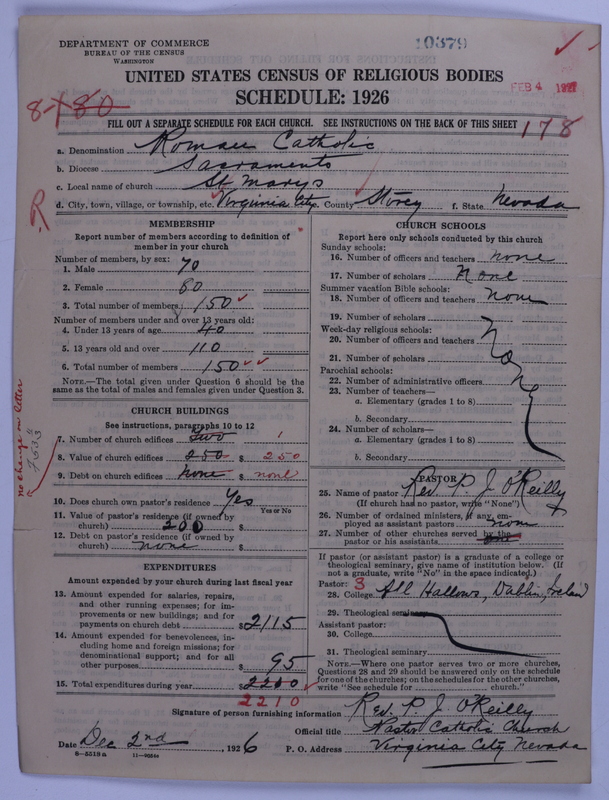 DEPARTMENT OF COMMERCE
BUREAU OF THE CENSUS
WASHINGTON
10379
UNITED STATES CENSUS OF RELIGIOUS BODIES
SCHEDULE: 1926
FEB 4 1927
8-180
FILL OUT A SEPARATE SCHEDULE FOR EACH CHURCH. SEE INSTRUCTIONS ON THE BACK OF THIS SHEET
178
a. Denomination Roman Catholic
b. Diocese Sacramento
c. Local name of church St Marys
d. City, town, village, or township, etc. Virginia City County Storey f. State Nevada
R
MEMBERSHIP
Report number of members according to definition of
member in your church
Number of members, by sex:
1. Male 70
2. Female 80
3. Total number of members 150
Number of members under and over 13 years old:
4. Under 13 years of age 40
5. 13 years old and over 110
6. Total number of members 150
NOTE.—The total given under Question 6 should be the
same as the total of males and females given under Question 3.
CHURCH BUILDINGS
See instructions, paragraphs 10 to 12
7. Number of church edifices Two 1
8. Value of church edifices $ 250 $ 250
9. Debt on church edifices none $ none
no change in letter
10. Does church own pastor's residence Yes
Yes or No
11. Value of pastor's residence (if owned by
church) 200 $
12. Debt on pastor's residence (if owned by
church) none $
EXPENDITURES
Amount expended by your church during last fiscal year
13. Amount expended for salaries, repairs,
and other running expenses; for im-
provements or new buildings; and for
payments on church debt $ 2115
14. Amount expended for benevolences, in-
cluding home and foreign missions; for
denominational support; and for all
other purposes $ 95
15. Total expenditures during year $ 2210
2210
CHURCH SCHOOLS
Report here only schools conducted by this church
Sunday schools:
16. Number of officers and teachers none
17. Number of scholars None
Summer vacation Bible schools:
18. Number of officers and teachers None
19. Number of scholars
Week-day religious schools:
20. Number of officers and teachers
21. Number of scholars
None
Parochial schools:
22. Number of administrative officers
23. Number of teachers—
a. Elementary (grades 1 to 8)
b. Secondary
24. Number of scholars—
a. Elementary (grades 1 to 8)
b. Secondary
PASTOR
25. Name of pastor Rev. P. J. O'Reilly
(If church has no pastor, write "None")
26. Number of ordained ministers, if any, em-
ployed as assistant pastors none
27. Number of other churches served by the
pastor or his assistants
If pastor (or assistant pastor) is a graduate of a college or
theological seminary, give name of institution below. (If
not a graduate, write "No" in the space indicated.)
Pastor: 3
28. College All Hallows, Dublin, Ireland
29. Theological seminary
Assistant pastor:
30. College
31. Theological seminary
NOTE.—Where one pastor serves two or more churches,
Questions 28 and 29 should be answered only on the schedule
for one of the churches; on the schedules for the other churches,
write "See schedule for church."
Signature of person furnishing information Rev. P. J. O'Reilly
Official title Pastor Catholic Church
Date Dec 2nd, 1926 P. O. Address Virginia City Nevada
8—5519a 11—9064a